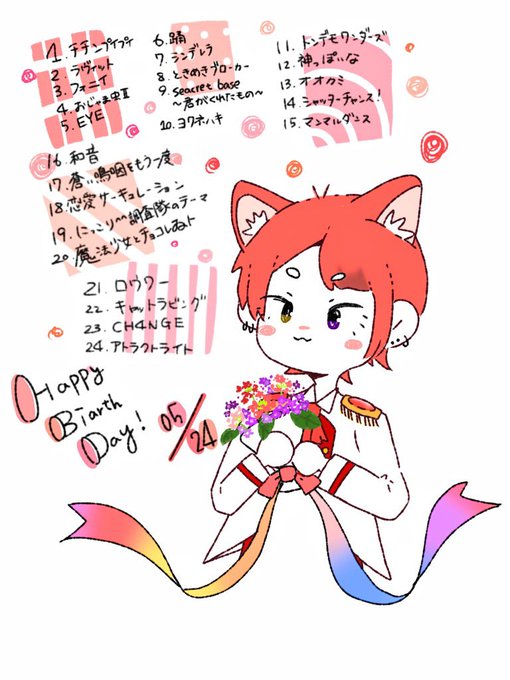 1. チチンプイプイ
2. ラヴィット
3. フォニイ
4. おじゃま虫Ⅱ
5. EYE
6. 踊
7. ランデレラ
8. ときめきブローカー
9. seacret base
～君がくれたもの～
10. ヨワネハキ
11. トンデモワンダーズ
12. 神っぽいな
13. オオカミ
14. シャッターチャンス!
15. マンマルダンス
16. 和音
17. 蒼い鳴咽をもう一度
18. 恋愛サーキュレーション
19. にっこり^^調査隊のテーマ
20. 魔法少女とチョコレゐト
21. ロウワー
22. キャットラビング
23. CH4NGE
24. アトラクトライト
Happy
Biarth
Day!
05/24